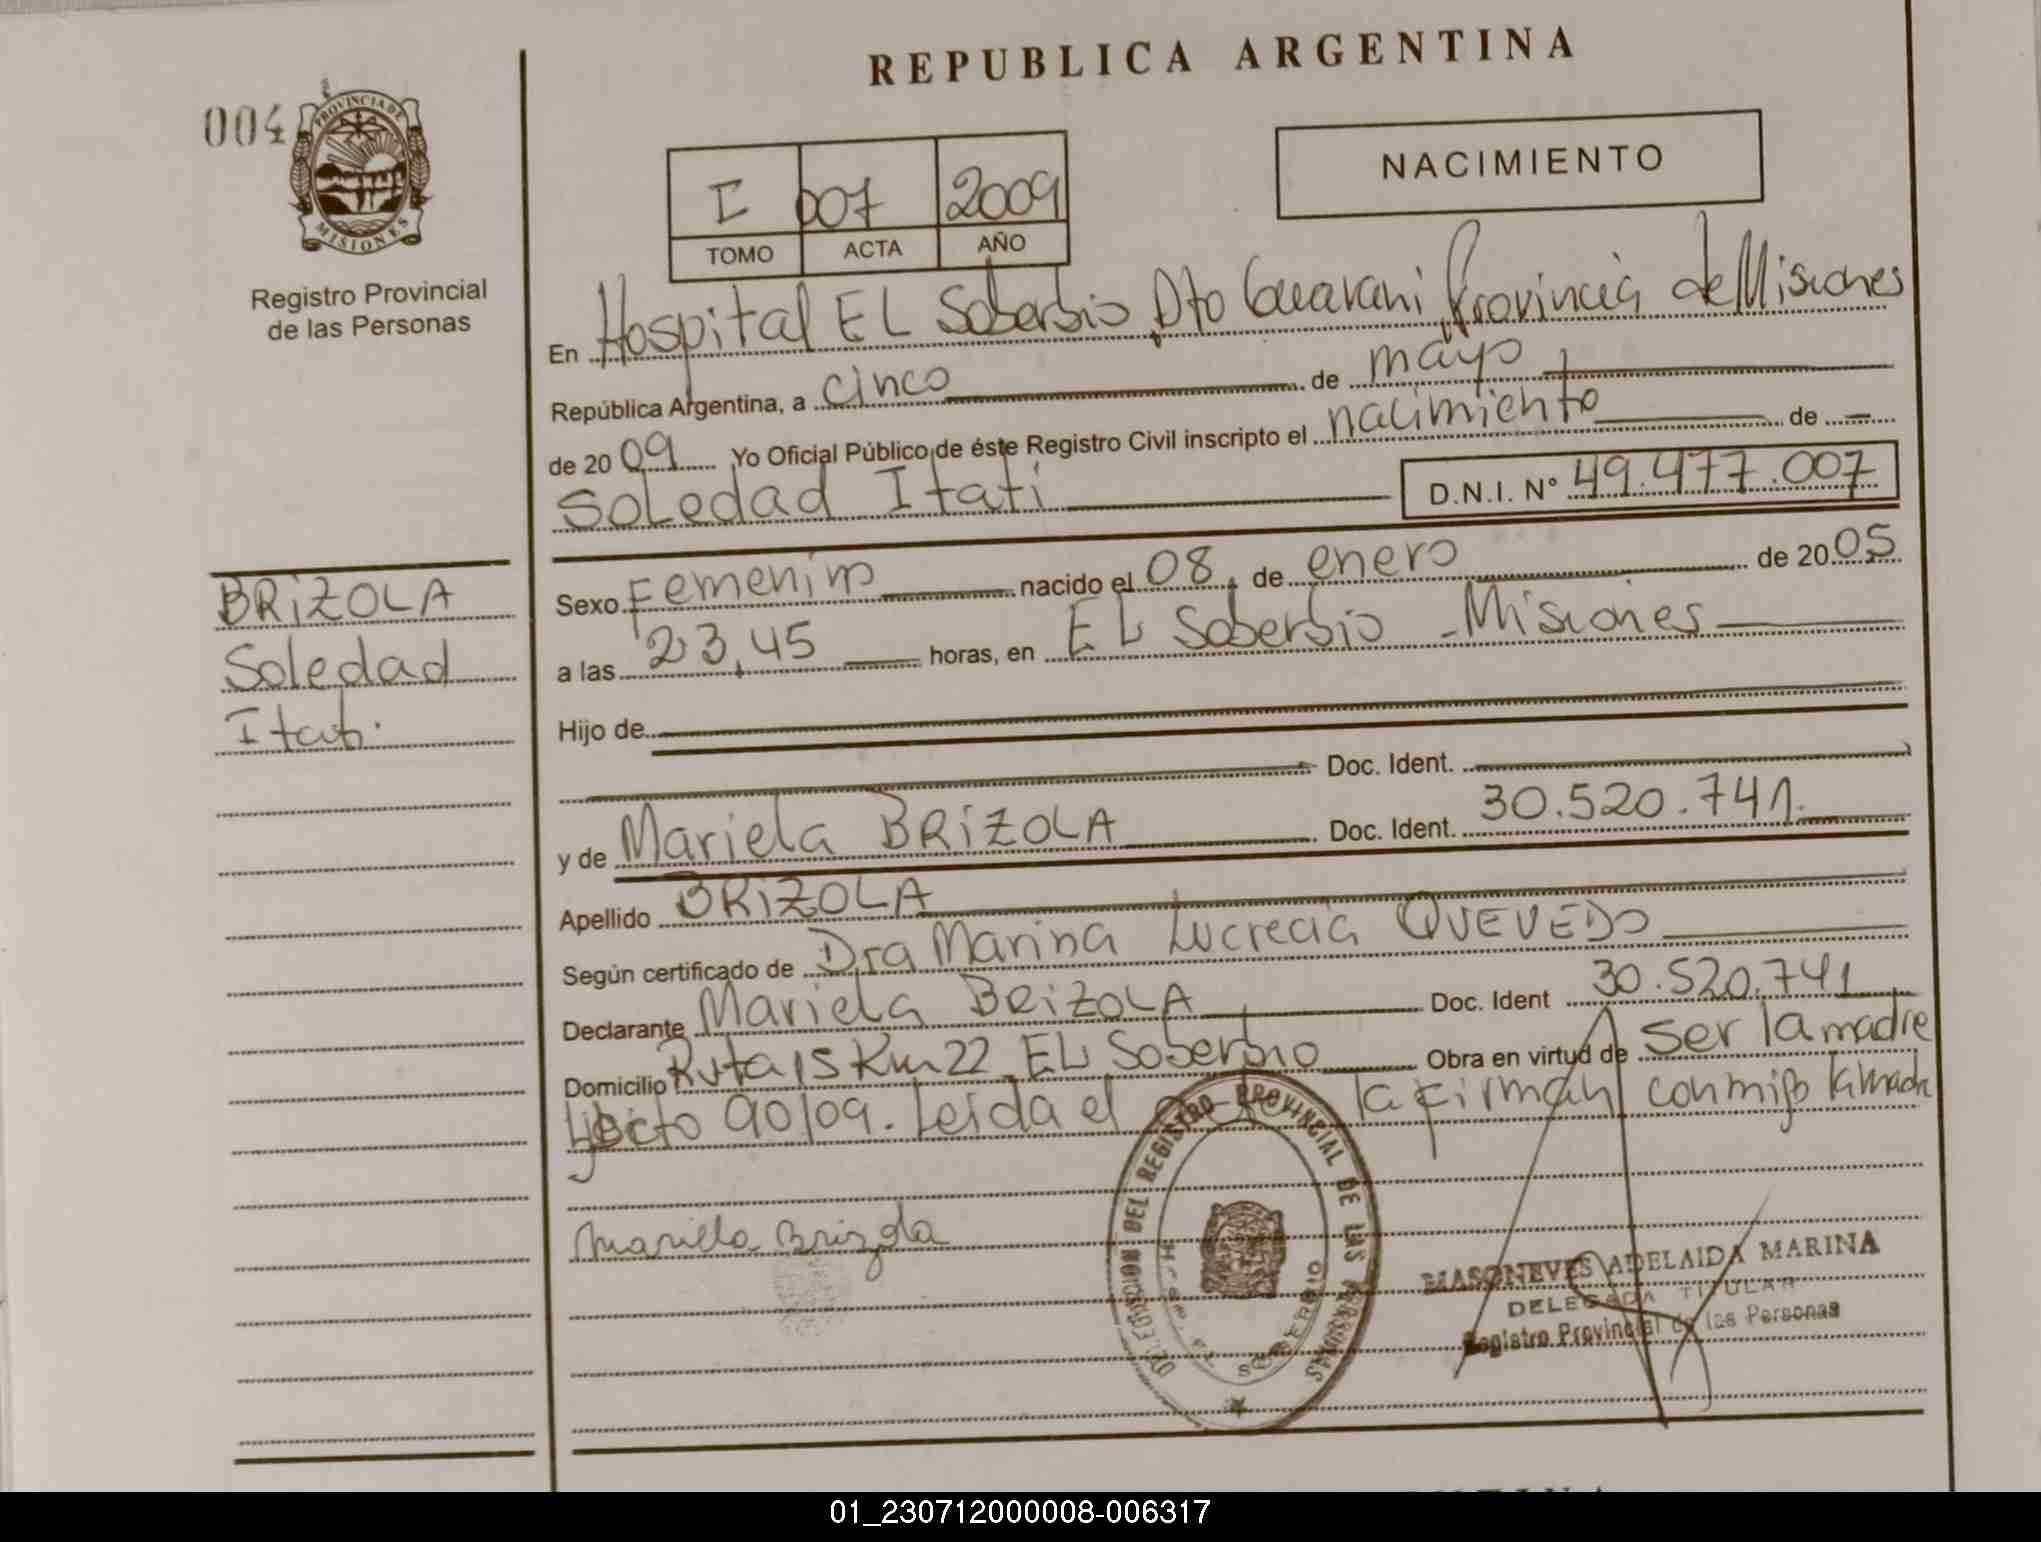 REPUBLICA ARGENTINA
004
PROVINCIA DE
MISIONES
Registro Provincial
de las Personas
NACIMIENTO
I 007 2009
TOMO ACTA AÑO
En Hospital EL Soberbio Dto Guarani Provincia de Misiones
República Argentina, a cinco de mayo
de 2009 Yo Oficial Público de éste Registro Civil inscripto el nacimiento de
Soledad Itati D.N.I. N° 49.477.007
BRIZOLA
Soledad
Itati.
Sexo Femenino nacido el 08 de enero de 2005
a las 23,45 horas, en EL Soberbio - Misiones
Hijo de
Doc. Ident.
y de Mariela BRIZOLA Doc. Ident. 30.520.741.
Apellido BRIZOLA
Según certificado de Dra Marina Lucrecia QUEVEDO
Declarante Mariela BRIZOLA Doc. Ident 30.520.741
Domicilio Ruta 15 Km 22 EL Soberbio Obra en virtud de ser la madre
y Dcto 90/09. Leida el la firman conmigo la madre
Mariela Brizola
DELEGACION DEL REGISTRO PROVINCIAL DE LAS PERSONAS
SOBERBIO
MASONEVES ADELAIDA MARINA
DELEGADA TITULAR
Registro Provincial de las Personas
01_230712000008-006317